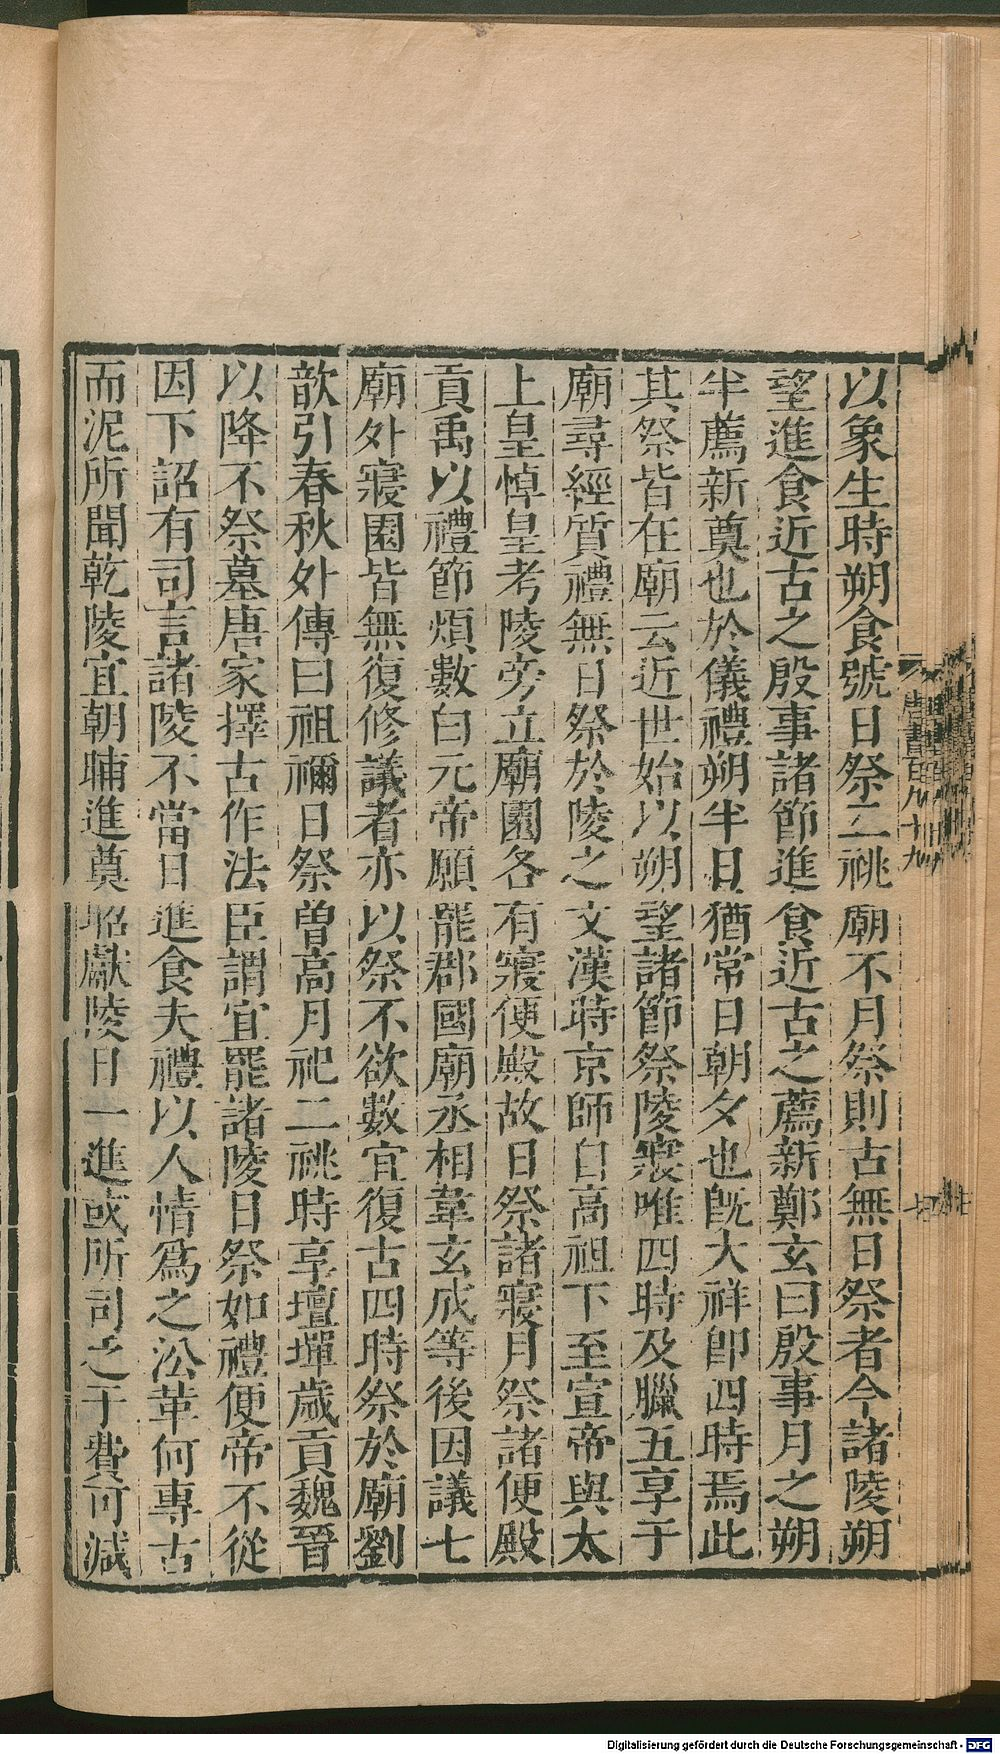 以象生時朔食號日祭二祧廟不月祭則古無日祭者今諸陵朔
望進食近古之殷事諸節進食近古之薦新鄭玄曰殷事月之朔
半薦新奠也於儀禮朔半日猶常日朝夕也既大祥即四時焉此
其祭皆在廟云近世始以朔望諸節祭陵寢唯四時及臘五享于
廟尋經質禮無日祭於陵之文漢時京師自高祖下至宣帝與太
上皇悼皇考陵旁立廟園各有寢便殿故日祭諸寢月祭諸便殿
貢禹以禮節煩數白元帝願罷郡國廟丞相韋玄成等後因議七
廟外寢園皆無復修議者亦以祭不欲數宜復古四時祭於廟劉
歆引春秋外傳曰祖禰日祭曾高月祀二祧時享壇墠歲貢魏晉
以降不祭墓唐家擇古作法臣謂宜罷諸陵日祭如禮便帝不從
因下詔有司言諸陵不當日進食夫禮以人情爲之沿革何專古
而泥所聞乾陵宜朝晡進奠昭獻陵日一進或所司乏于費可減
唐書百九十九
Digitalisierung gefördert durch die Deutsche Forschungsgemeinschaft - DFG